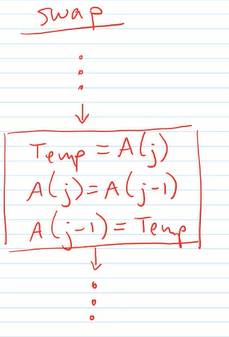 swap
Temp = A(j)
A(j) = A(j-1)
A(j-1) = Temp